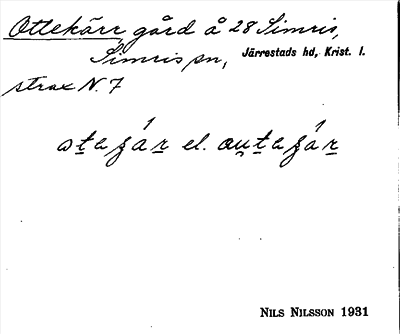 Ottekärr gård å 28 Simris,
Simris sn, Järrestads hd, Krist. l.
strax N. 7
ɷtagár el. au̯tagár
Nils Nilsson 1931